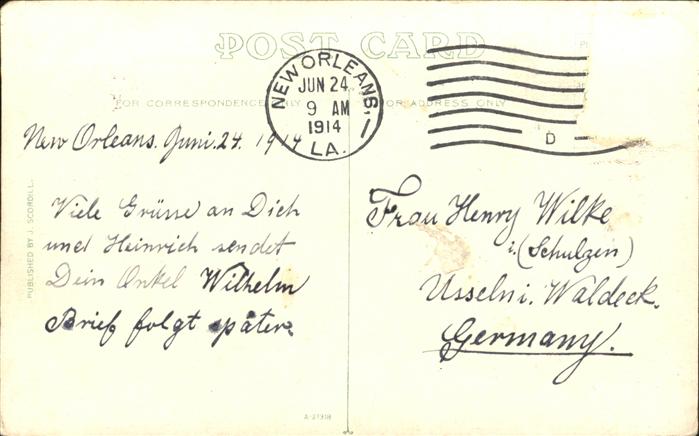 POST CARD
NEW ORLEANS,
JUN 24
9 AM
1914
LA.
1
D
FOR CORRESPONDENCE ONLY
FOR ADDRESS ONLY
New Orleans. Juni. 24. 1914
Viele Grüsse an Dich
und Heinrich sendet
Dein Onkel Wilhelm
Brief folgt später.
Frau Henry Wilke
(Schulzen)
Usseln i. Waldeck.
Germany.
PUBLISHED BY J. SCORDILL.